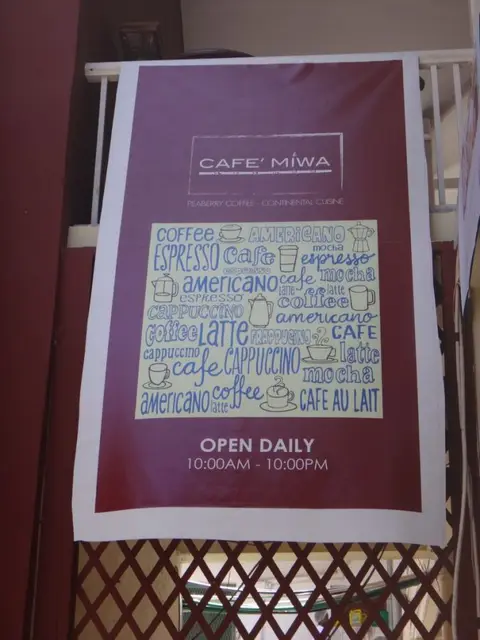 CAFE' MiWA
PEABERRY COFFEE - CONTINENTAL CUISINE
COFFEE AMERICANO
ESPRESSO Cafe mocha espresso
americano cafe mocha
espresso latte coffee latte
CAPPUCCINO americano
coffee LATTE FRAPPUCINO CAFE
cappuccino cafe CAPPUCCINO latte
mocha
americano latte coffee CAFE AU LAIT
OPEN DAILY
10:00AM - 10:00PM